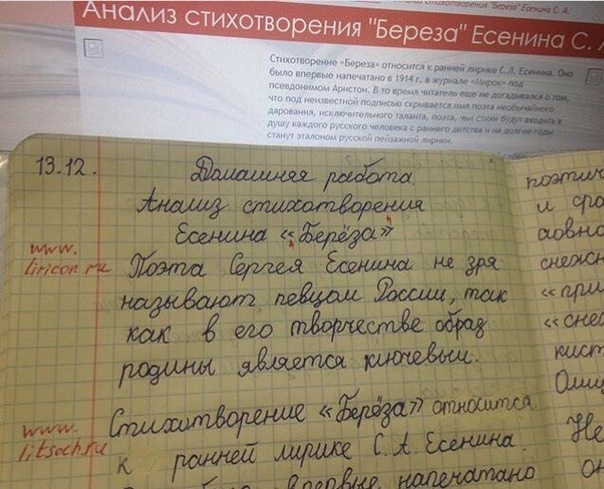 Анализ стихотворения "Береза" Есенина С. А
Стихотворение «Береза» относится к ранней лирике С.Л. Есенина. Оно
было впервые напечатано в 1914 г. в журнале «Мирок» под
псевдонимом Аристон. В то время читатель еще не догадывался о том,
что под неизвестной подписью скрывается имя поэта необычайного
дарования, исключительного таланта, поэта, чьи стихи будут входить в
душу каждого русского человека с раннего детства и на долгие годы
станут эталоном русской пейзажной лирики.
13.12.
Домашняя работа.
Анализ стихотворения
Есенина «Берёза»
www.
liricon.ru
Поэта Сергея Есенина не зря
называют певцом России, так
как в его творчестве образ
родины является ключевым.
www.
litsoch.ru
Стихотворение «Берёза» относится
к ранней лирике С. А. Есенина.
впервые напечатано
поэтич
и сра
снежн
«при
«сне
кист
Не
он